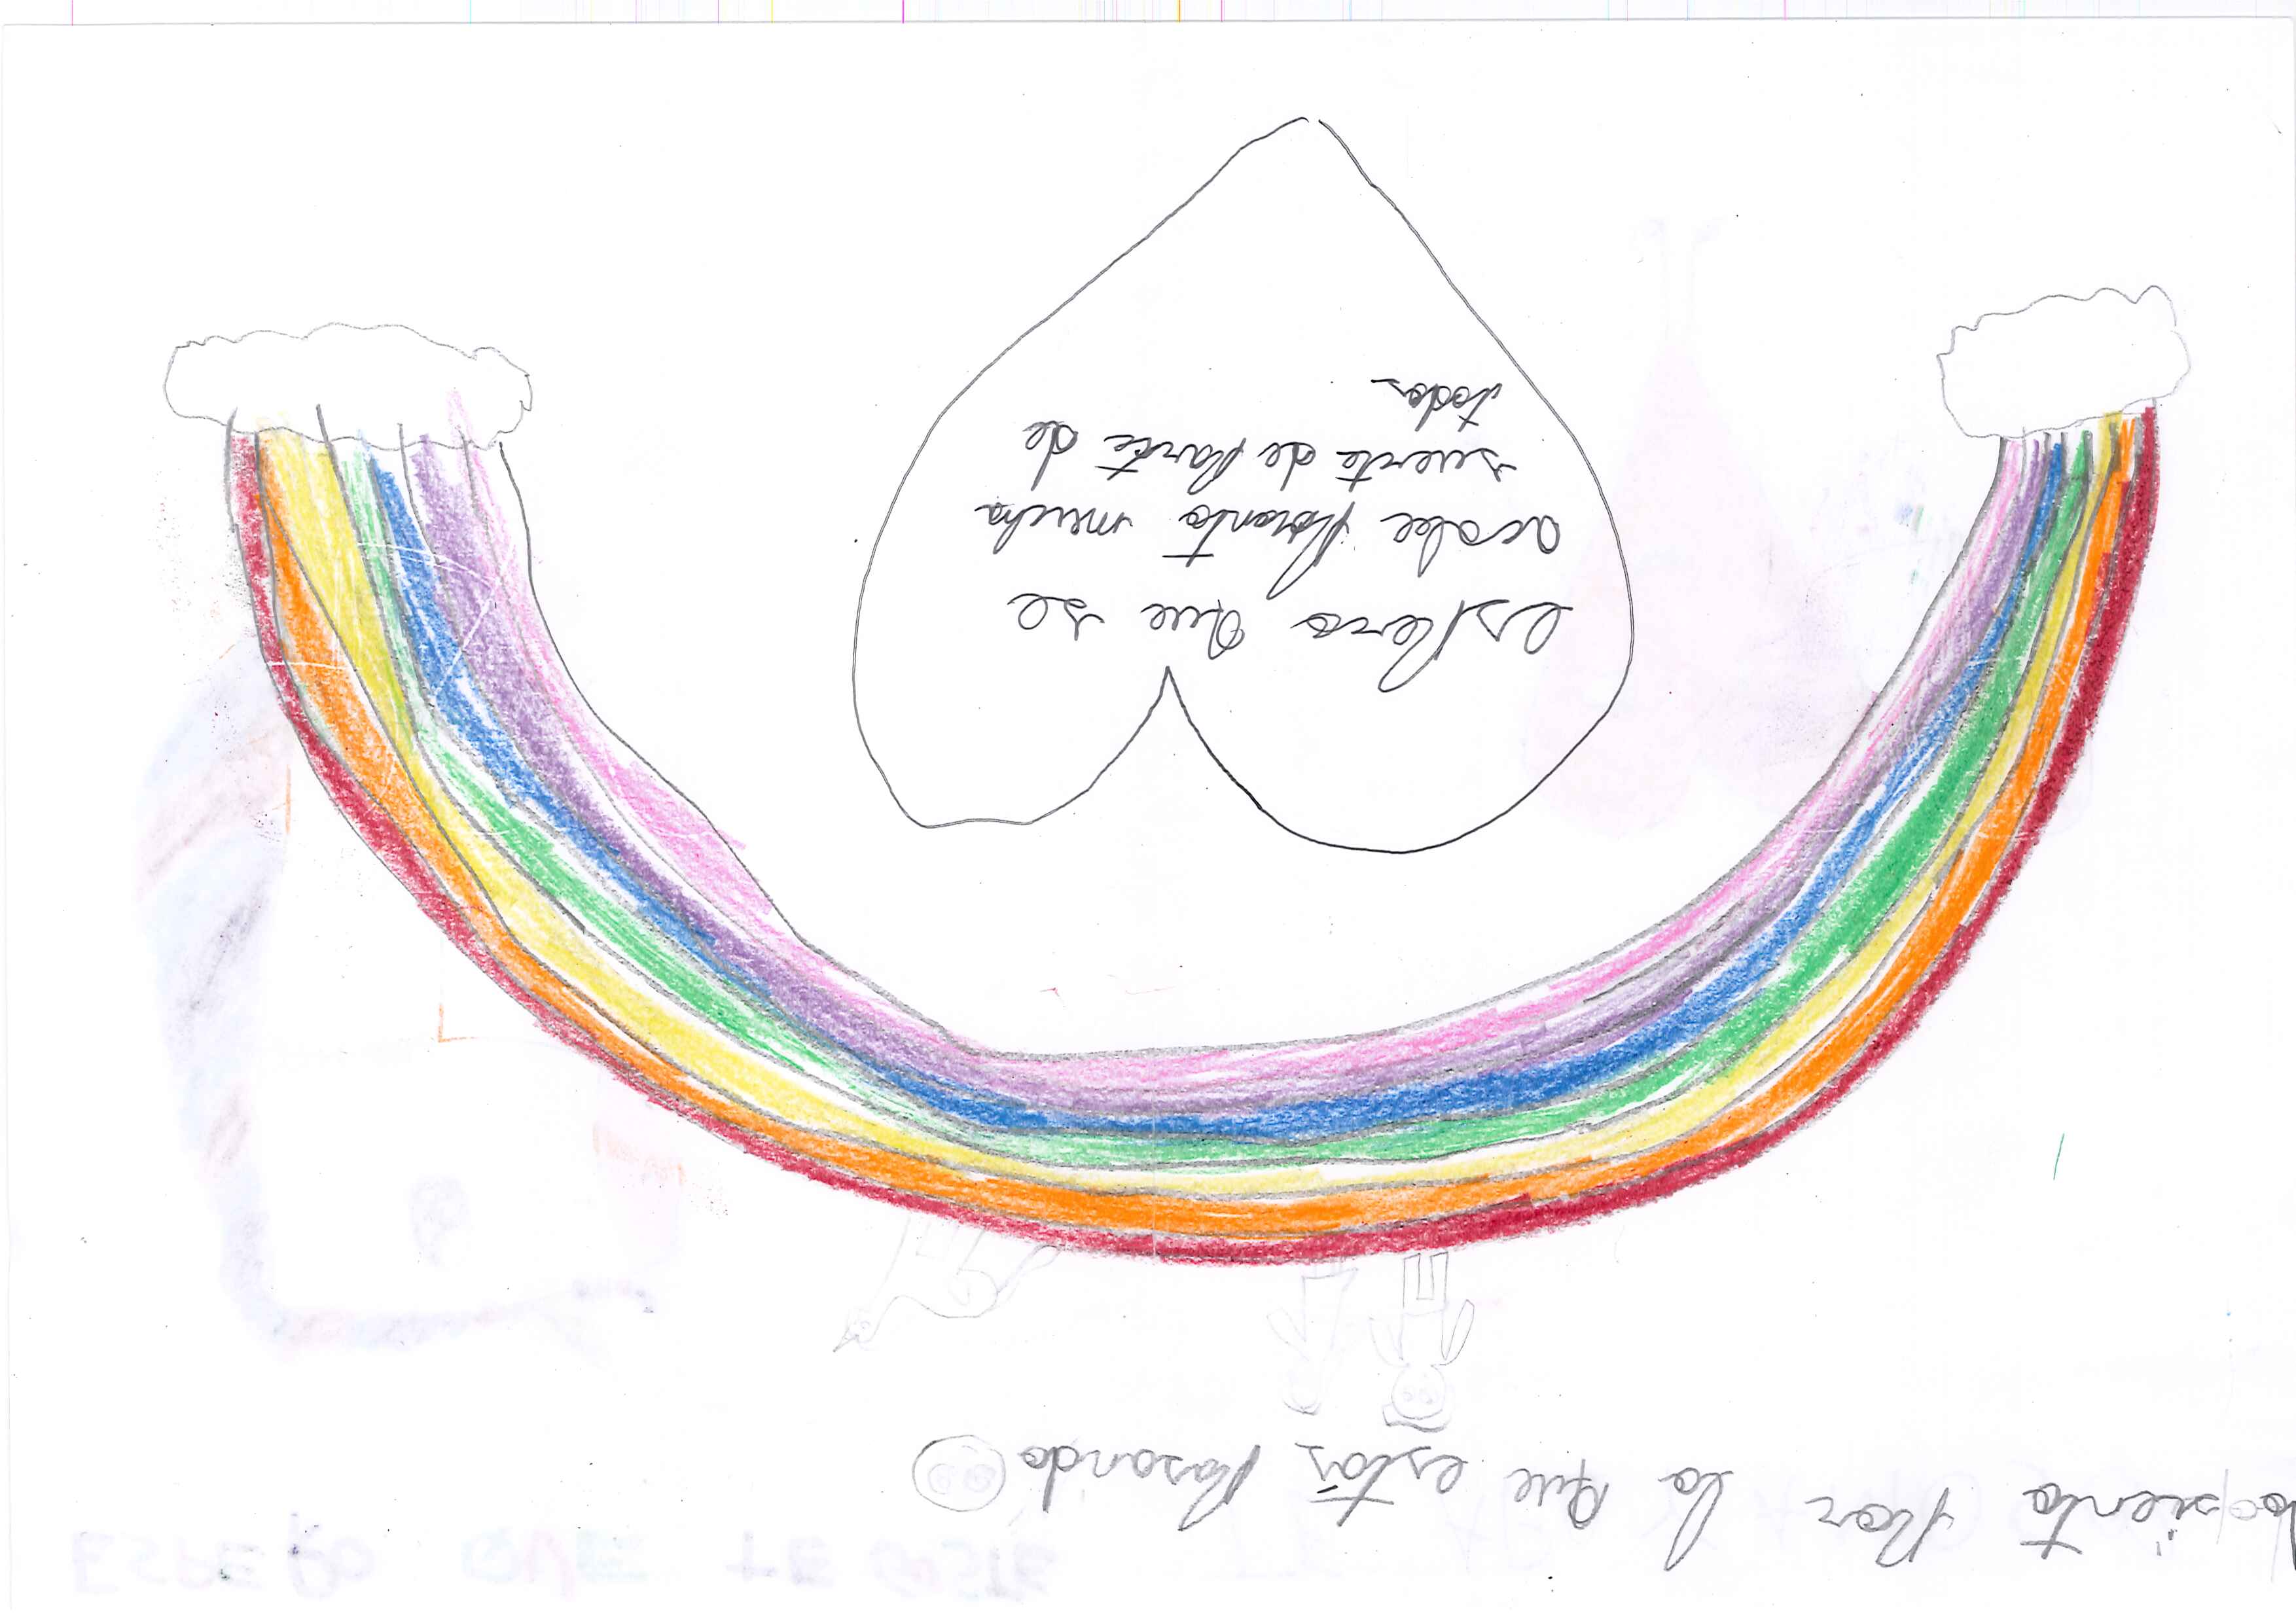 ESPERO QUE TE GUSTE
Lo siento por lo que estás pasando
espero que se
acabe pronto mucha
suerte de parte de
todos